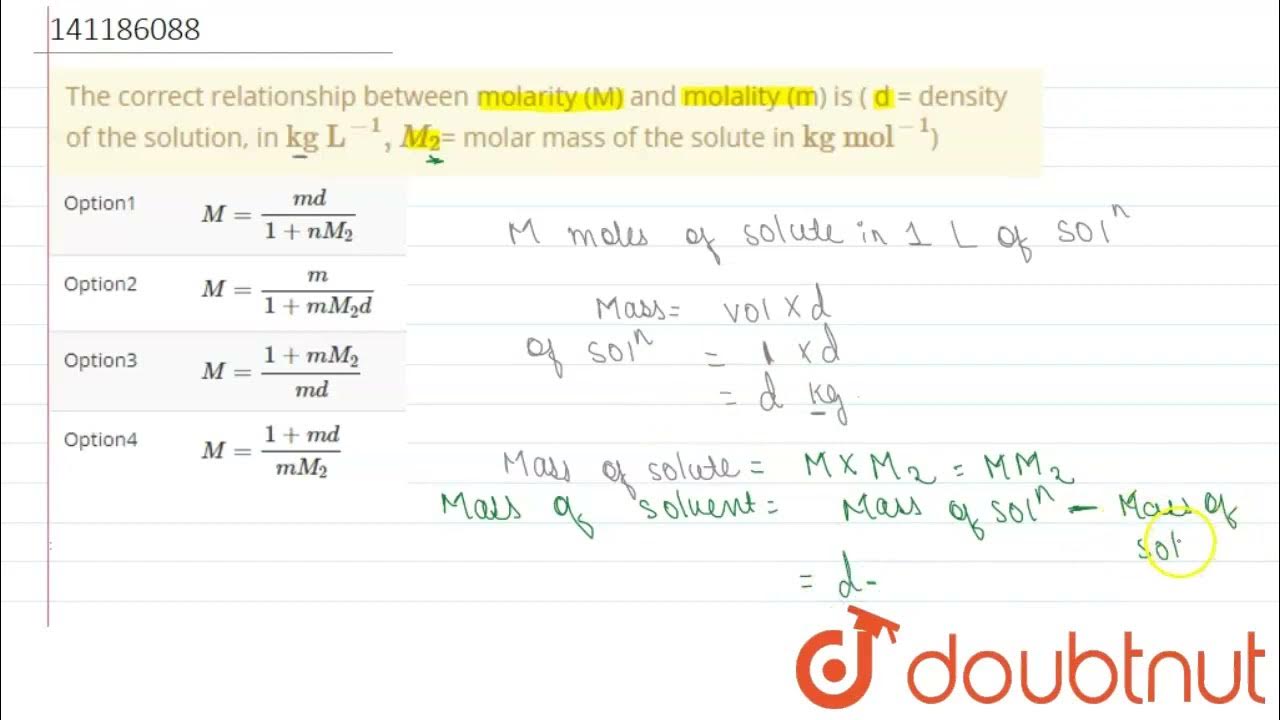 141186088
The correct relationship between molarity (M) and molality (m) is ( d = density
of the solution, in kg L⁻¹, M₂= molar mass of the solute in kg mol⁻¹)
Option1 M = md / (1 + nM₂)
Option2 M = m / (1 + mM₂d)
Option3 M = (1 + mM₂) / md
Option4 M = (1 + md) / mM₂
M moles of solute in 1 L of solⁿ
Mass = vol × d
of solⁿ = 1 × d
= d kg
Mass of solute = M × M₂ = MM₂
Mass of solvent = Mass of solⁿ - Mass of
sol
= d -
doubtnut